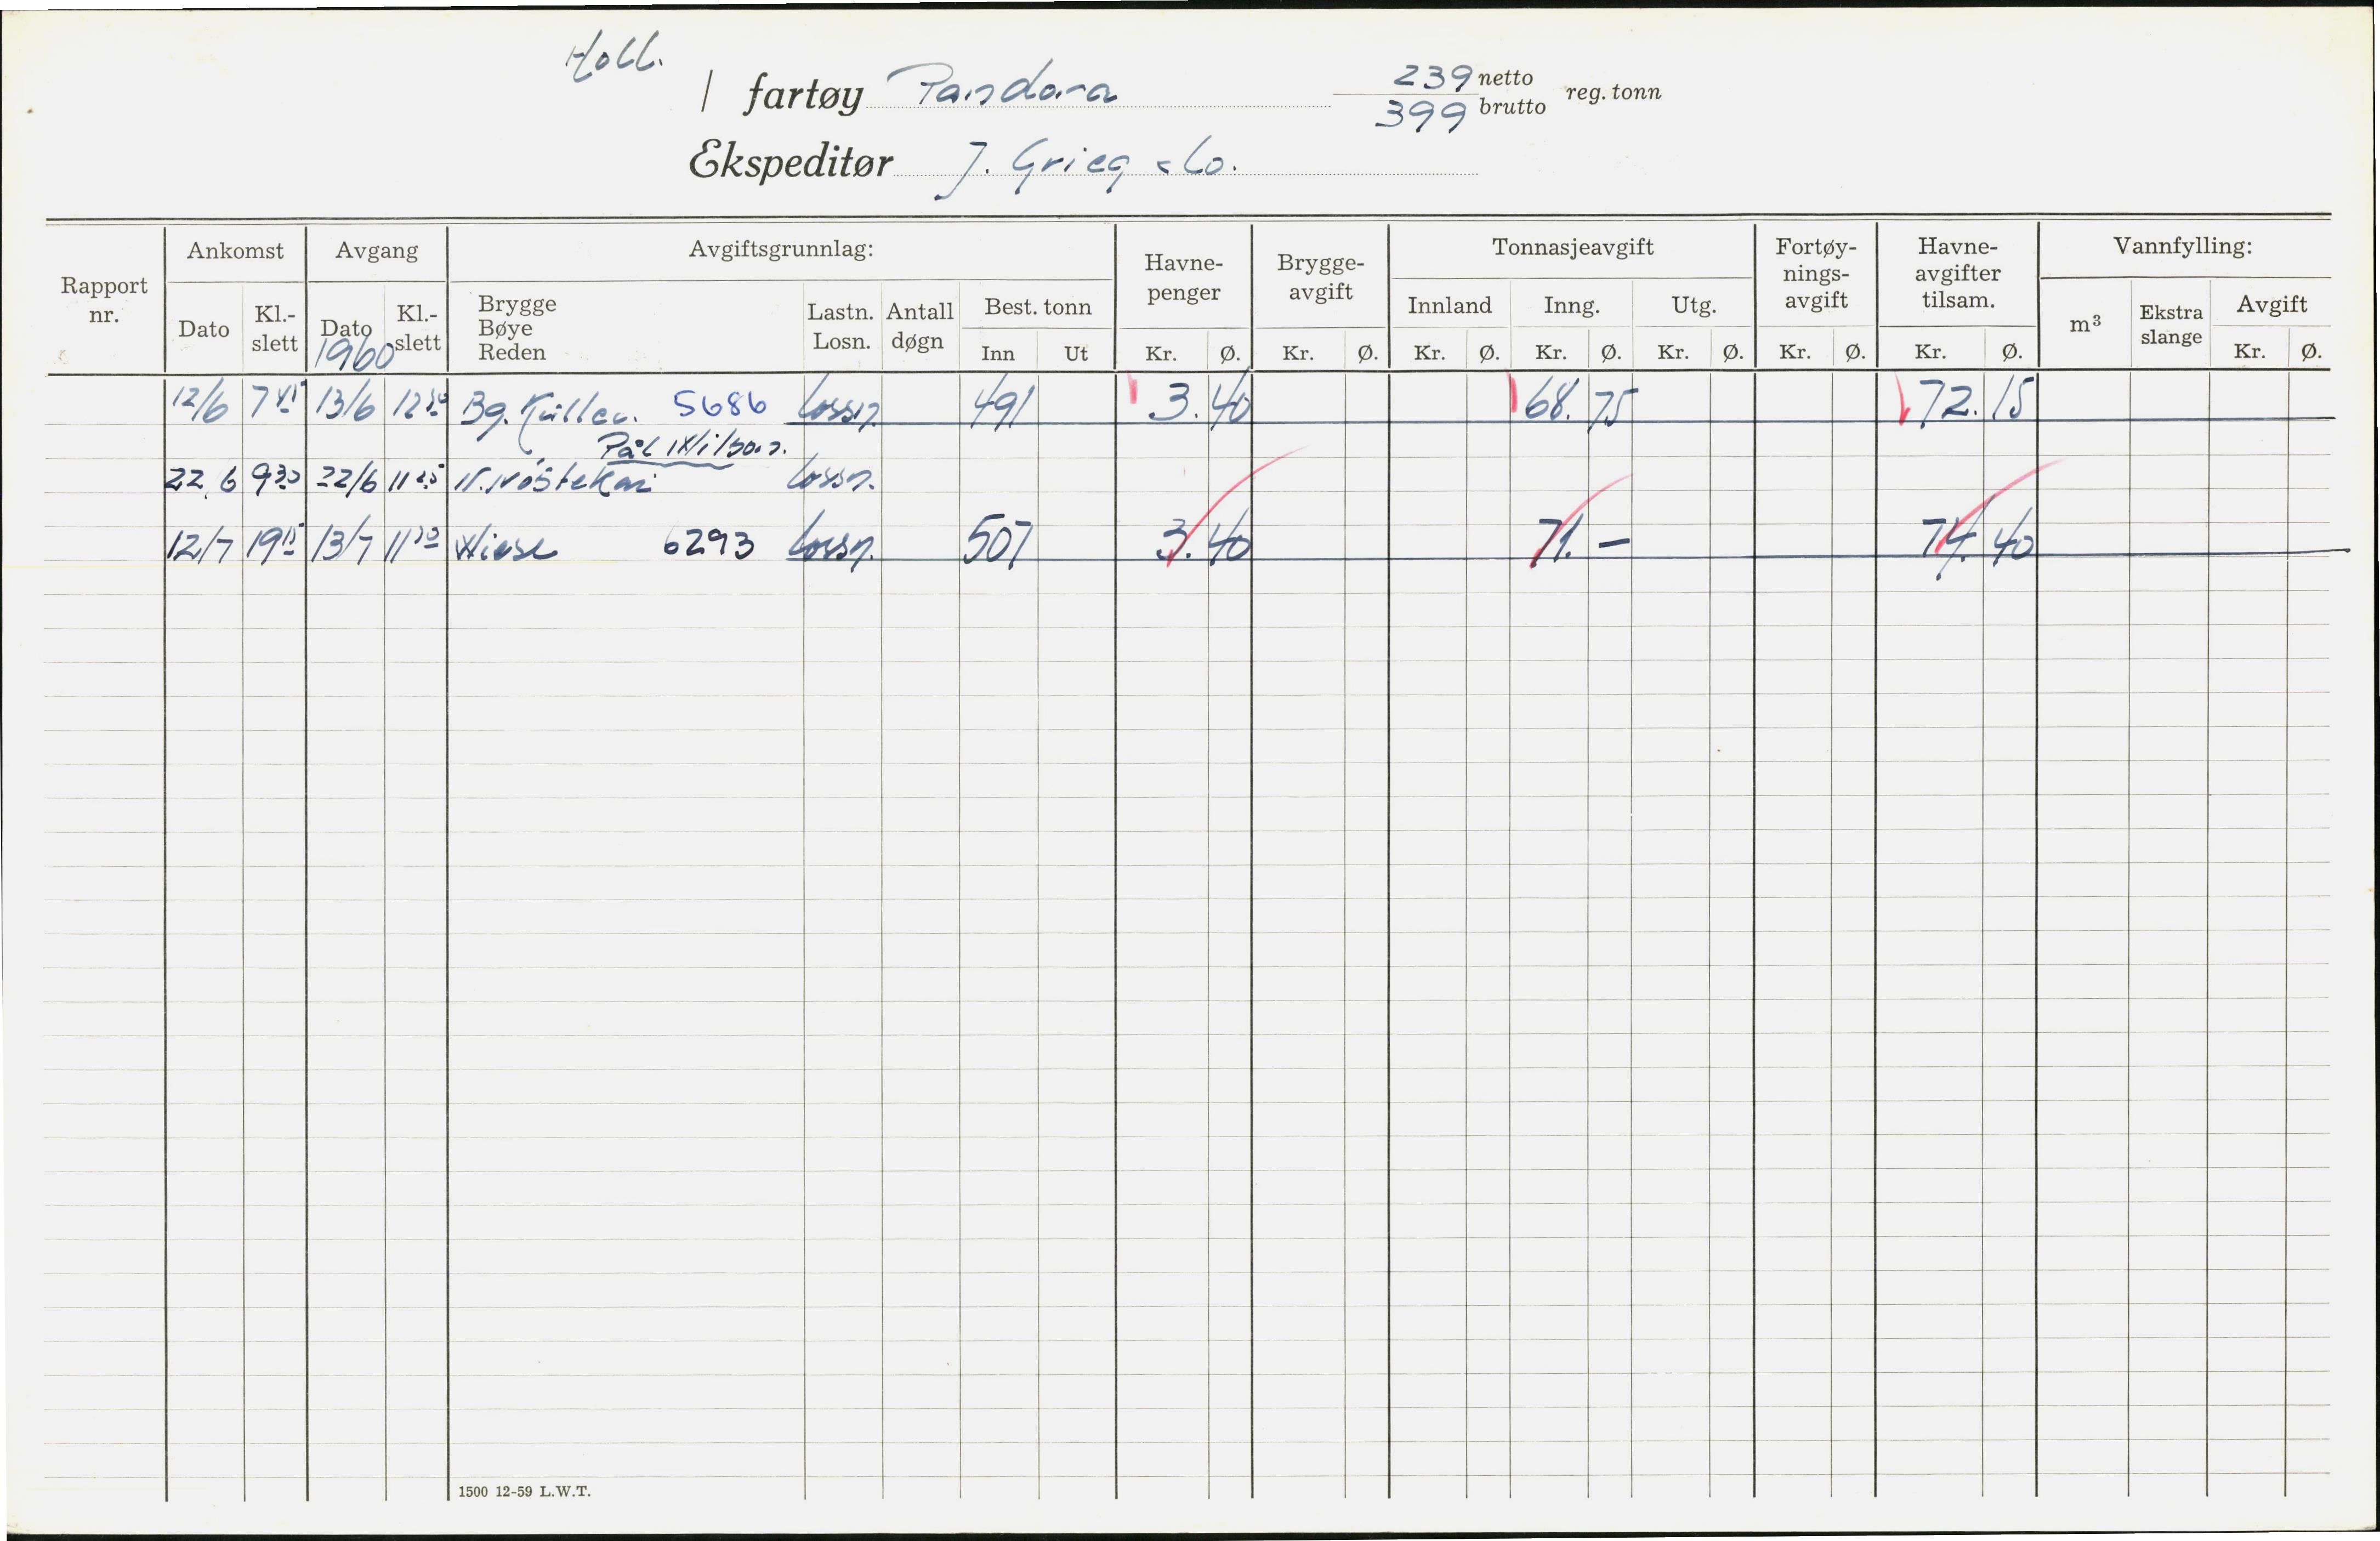 Holl.
/ fartøy Pandora 239 netto reg. tonn
399 brutto
Ekspeditør J. Grieg & Co.
Rapport nr. Ankomst Avgang Avgiftsgrunnlag: Havne-penger Brygge-avgift Tonnasjeavgift Fortøy-nings-avgift Havne-avgifter tilsam. Vannfylling:
Dato Kl.-slett Dato Kl.-slett Brygge Bøye Reden Lastn. Losn. Antall døgn Best. tonn Innland Inng. Utg. m³ Ekstra slange Avgift
1960 Inn Ut Kr. Ø. Kr. Ø. Kr. Ø. Kr. Ø. Kr. Ø. Kr. Ø. Kr. Ø. Kr. Ø.
12/6 7 13/6 12 Bg. 5686 lossn 491 3.40 68.75 72.15
Pål Wilson.
22.6 9 30 22/6 11 lossn.
12/7 19 15 13/7 11 Wiese 6293 lossn. 507 3.40 71.- 74.40
1500 12-59 L.W.T.